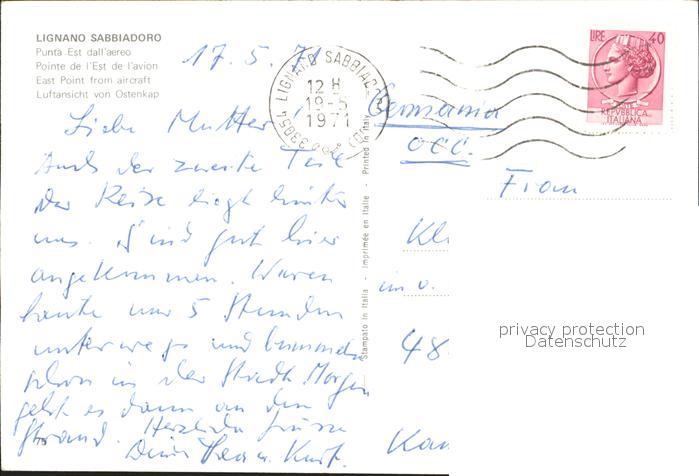 LIGNANO SABBIADORO
Punta Est dall'aereo
Pointe de l'Est de l'avion
East Point from aircraft
Luftansicht von Ostenkap
17.5.71
33054 LIGNANO SABBIAD
12 H
19-5
1971
LIRE 40
REPVBBLICA
ITALIANA
Germania
OCC.
Frau
Liebe Mutter!
Auch der zweite Teil
der Reise liegt hinter
uns. Sind gut hier
angekommen. Waren
heute nur 5 Stunden
unterwegs und bummeln
schon in der Stadt. Morgen
geht es dann an den
Strand. Herzliche Grüsse
Deine Thea u. Kurt.
Stampato in Italia - Imprimée en Italie - Printed in Italy
Kl
in v.
48
Kam
privacy protection
Datenschutz